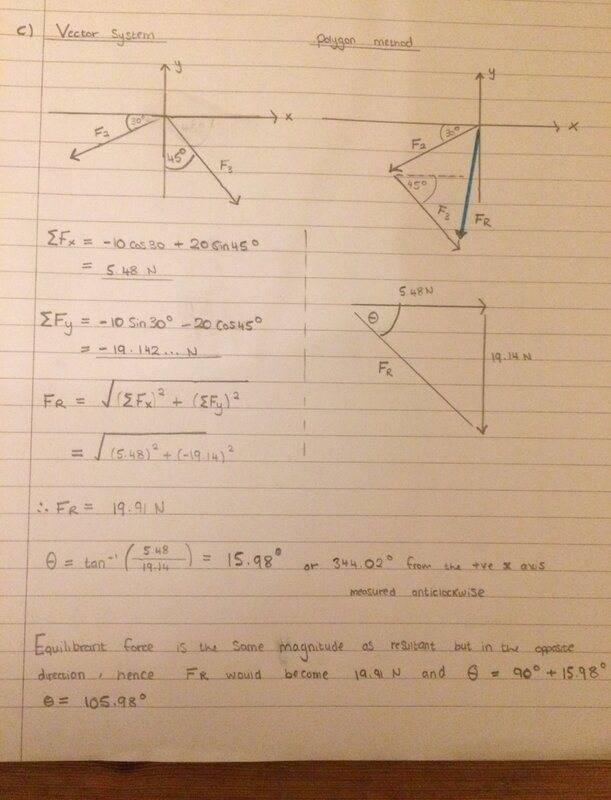 c) Vector System
Polygon method
y
x
30°
F2
45°
45°
F3
y
x
30°
F2
45°
F3
FR
ΣFx = -10 cos 30 + 20 Sin 45°
= 5.48 N
ΣFy = -10 Sin 30° - 20 Cos 45°
= -19.142... N
FR = √(ΣFx)² + (ΣFy)²
= √(5.48)² + (-19.14)²
∴ FR = 19.91 N
5.48 N
θ
FR
19.14 N
θ = tan⁻¹ (5.48/19.14) = 15.98° or 344.02° from the +ve x axis
measured anticlockwise
Equilibrant force is the same magnitude as resultant but in the opposite
direction, hence FR would become 19.91 N and θ = 90° + 15.98°
θ = 105.98°